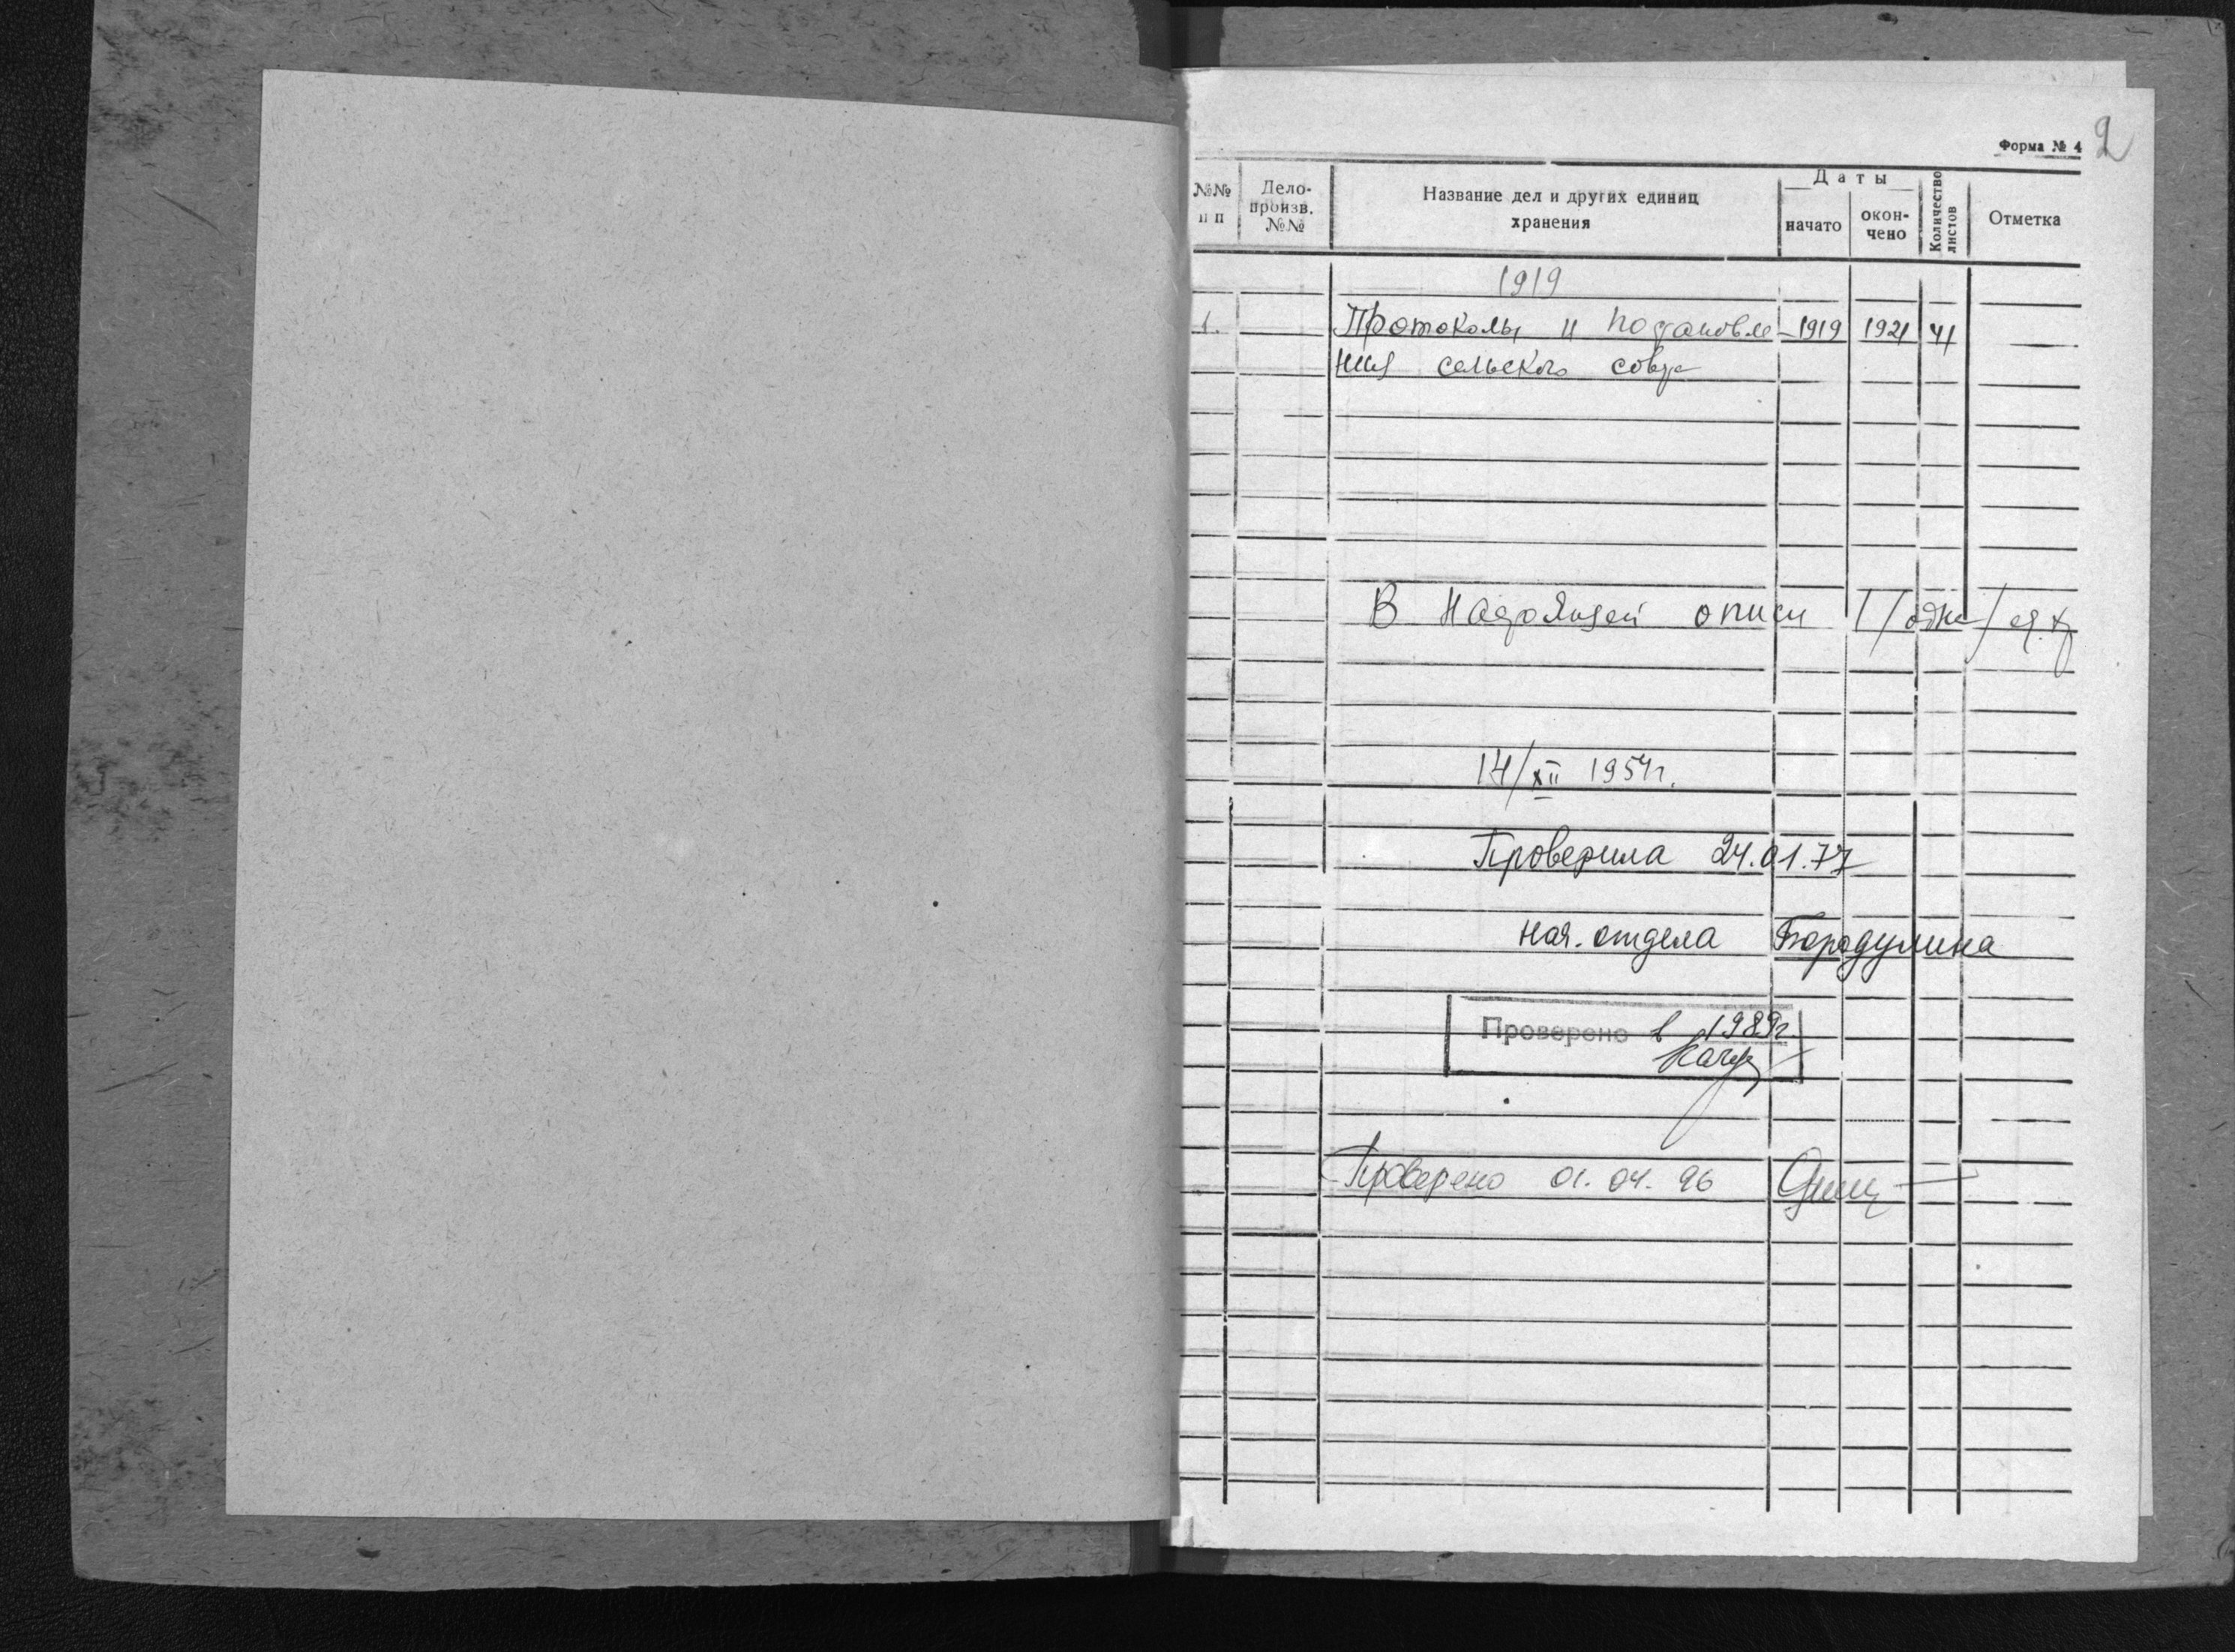 2
Форма № 4
№№ п п
Дело-произв. №№
Название дел и других единиц хранения
Даты
начато
окон-чено
Количество листов
Отметка
1919
1. Протоколы и постановле- 1919 1921 41
ния сельского совета
В настоящей описи 1/одна/ ед.хр
14/XII 1954г.
Проверила 24.01.77
нач. отдела Бородулина
Проверено в 1989г.
Проверено 01.04.96